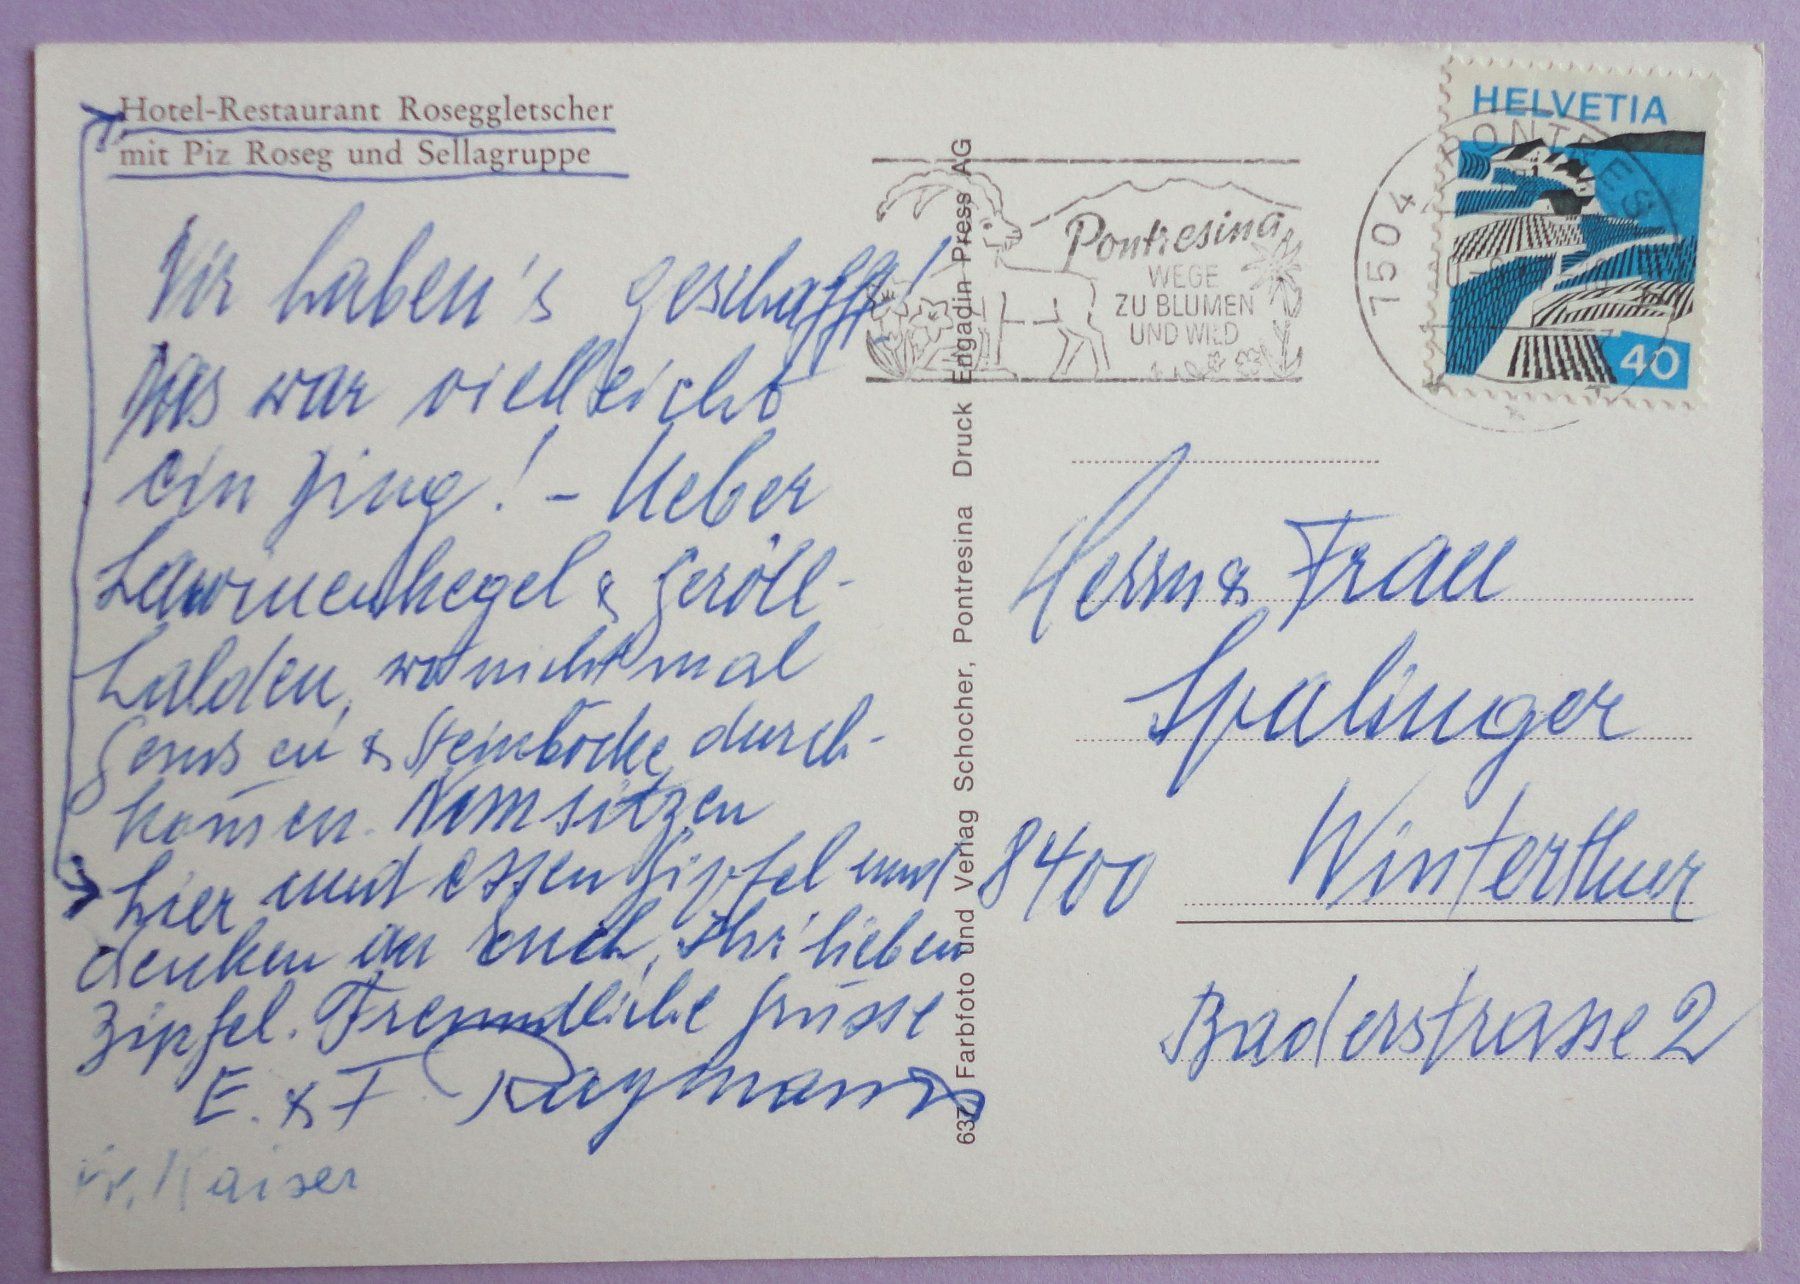 Hotel-Restaurant Roseggletscher
mit Piz Roseg und Sellagruppe
Wir haben's geschafft!
Das war vielleicht
ein Ding! - Ueber
Lawinenkegel & Geröll-
halden, wo nicht mal
Gemsen & Steinböcke durch-
kom̄en. Nun sitzen
hier und essen Gipfel und
denken an Euch, Ihr lieben
Zipfel. Freundliche Grüsse
E. & F. Raymann
Fr. Kaiser
637 Farbfoto und Verlag Schocher, Pontresina Druck Engadin Press AG
Pontresina
WEGE
ZU BLUMEN
UND WILD
7504 PONTRES
HELVETIA
40
Herrn & Frau
Spalinger
8400 Winterthur
Baderstrasse 2